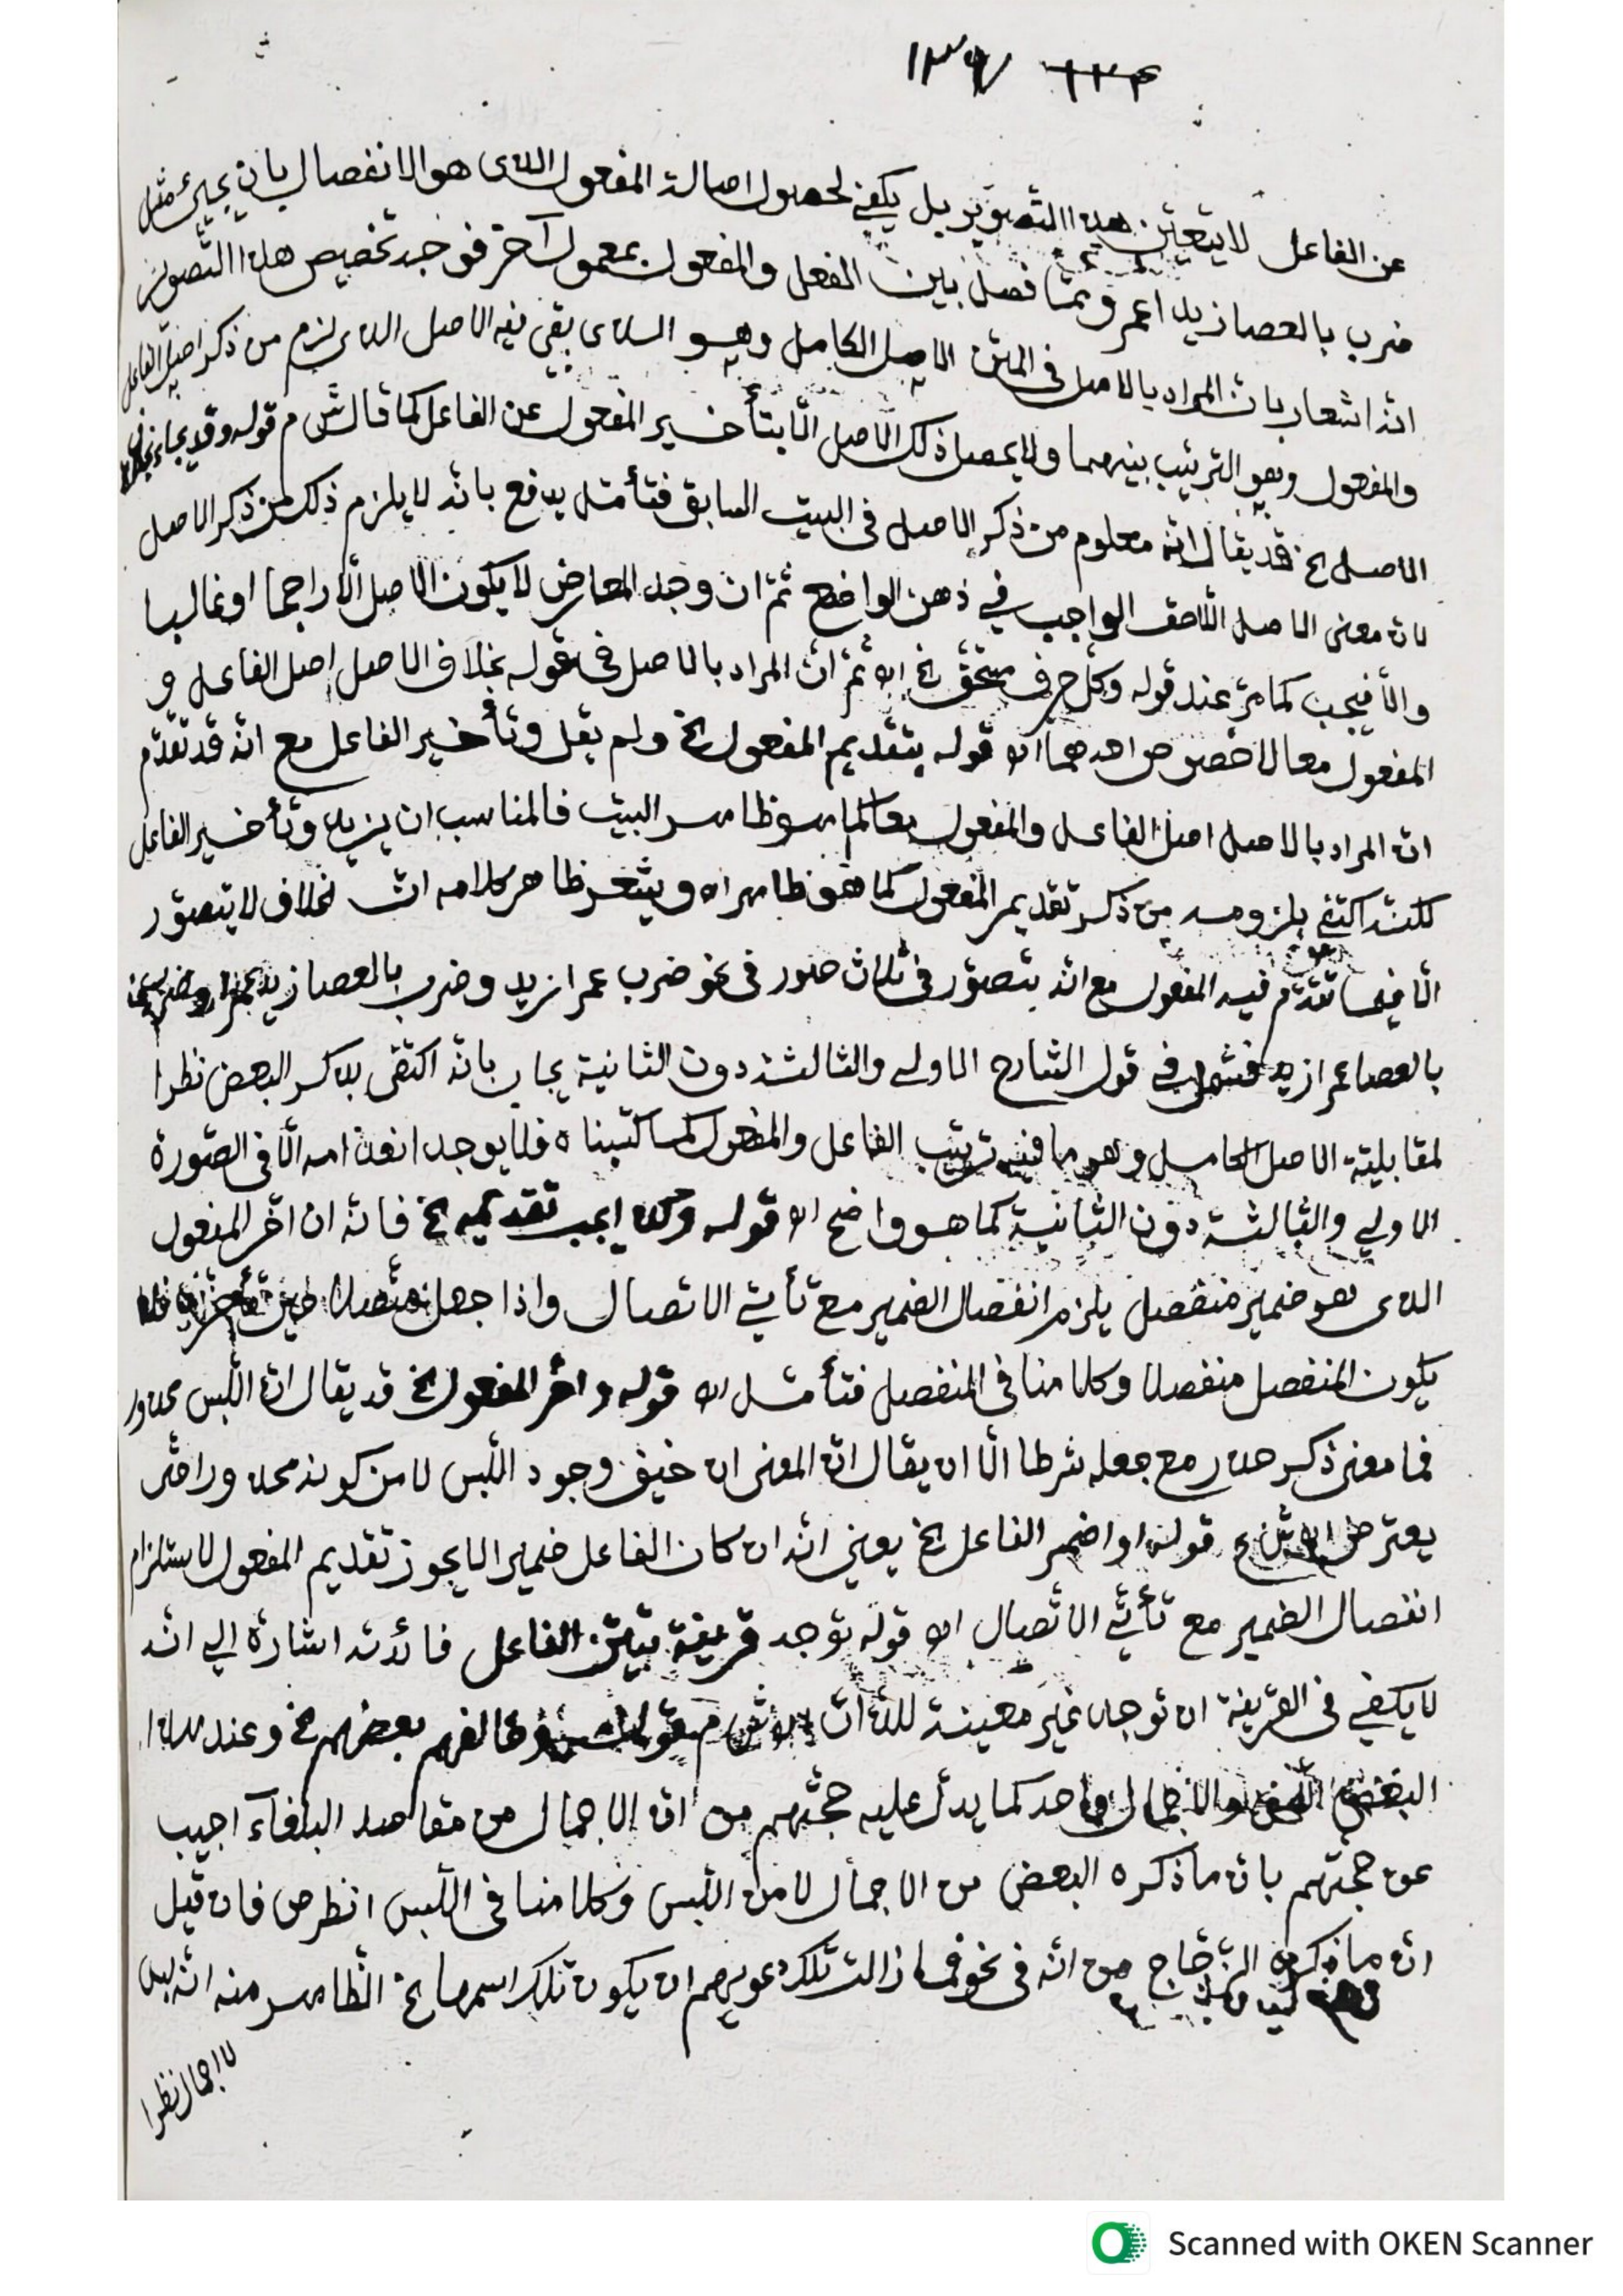 ١٣٦ ١٣٤
عن الفاعل لا يتعين هذا التصوير بل يكفي لحصول اصالة المفعول الذى هو الانفصال بان يجيئ مثل
ضرب بالعصا زيد اعمرو مما فصل بين الفعل والمفعول بمعمول آخر فوجه تخصيص هذا التصوير
انه اشعار بان المراد بالاصل فى المتن الاصل الكامل وهو الذى بقى فيه الاصل الذى لزم من ذكر اصل الفاعل
والمفعول وهو الترتيب بينهما ولا يحصل ذلك الاصل الّا بتأخير المفعول عن الفاعل كما قال ش م قوله وقد يجاء بخلاف
الاصل الخ قد يقال انه معلوم من ذكر الاصل فى البيت السابق فتأمل يدفع بانه لا يلزم ذلك من ذكر الاصل
لان معنى الاصل اللاصق الواجب في ذهن الواضع ثم ان وجد المعارض لا يكون الاصل الّا راجحا او غالبا
والّا فيجب كما مرّ عند قوله وكل حرف مستحق الخ اه ثم انّ المراد بالاصل فى قوله بخلاف الاصل اصل الفاعل و
المفعول معا لا خصوص احدهما اه قوله بتقديم المفعول الخ ولم يقل وتأخير الفاعل مع انه قد تقدّم
انّ المراد بالاصل اصل الفاعل والمفعول معا كما هو ظاهر البيت فالمناسب ان يزيد وتأخير الفاعل
لكنه اكتفى بلزومه من ذكر تقديم المفعول كما هو ظاهر اه ويشعر ظاهر كلامه انّ الخلاف لا يتصوّر
الّا فيما تقدّم فيه المفعول مع انه يتصوّر فى ثلاث صور فى نحو ضرب عمرا زيد وضرب بالعصا زيد عمرا وضرب
بالعصا عمرا زيد فشمل في قول الشارح الاولى والثالثة دون الثانية يجاب بانّه اكتفى بذكر البعض نظرا
لمقابلية الاصل الكامل وهو ما فيه ترتيب الفاعل والمفعول كما كتبناه فلا يوجد انعدامه الّا فى الصّورة
الاولى والثالثة دون الثانية كما هو واضح اه قوله وكذا يجب تقديمه الخ فانّه ان اخّر المفعول
الذى هو ضمير منفصل يلزم انفصال الضمير مع تأتّي الاتصال واذا جعل متصلا حين تأخره فلا
يكون المنفصل منفصلا وكلامنا فى المنفصل فتأمل اه قوله واخّر المفعول الخ قد يقال انّ اللّبس محذور
فما معنى ذكر حذر مع جعله شرطا الّا ان يقال انّ المعنى ان خيف وجود اللّبس لا من كونه محذورا حتّى
يعترض اه ش ع قوله او اضمر الفاعل الخ يعني انّه ان كان الفاعل ضميرا لا يجوز تقديم المفعول لاستلزام
انفصال الضمير مع تأتّي الاتّصال اه قوله توجد قرينة تبيّن الفاعل فائدته اشارة الى انّه
لا يكفي فى القرينة ان توجد غير معينة للذات اه ش م قوله وخالفهم بعضهم الخ وعند هذا
البعض اللبس والاجمال واحد كما يدلّ عليه حجّتهم من انّ الاجمال من مقاصد البلغاء اجيب
عن حجتهم بان ما ذكره البعض من الاجمال لا من اللّبس وكلامنا فى اللّبس انظر ص فان قيل
انّ ما ذكره الزجاج من انّه فى نحو فما زالت تلك دعويهم ان يكون تلك اسمها الخ الظاهر منه انّه ليس
لا اجمال نظرا
Scanned with OKEN Scanner